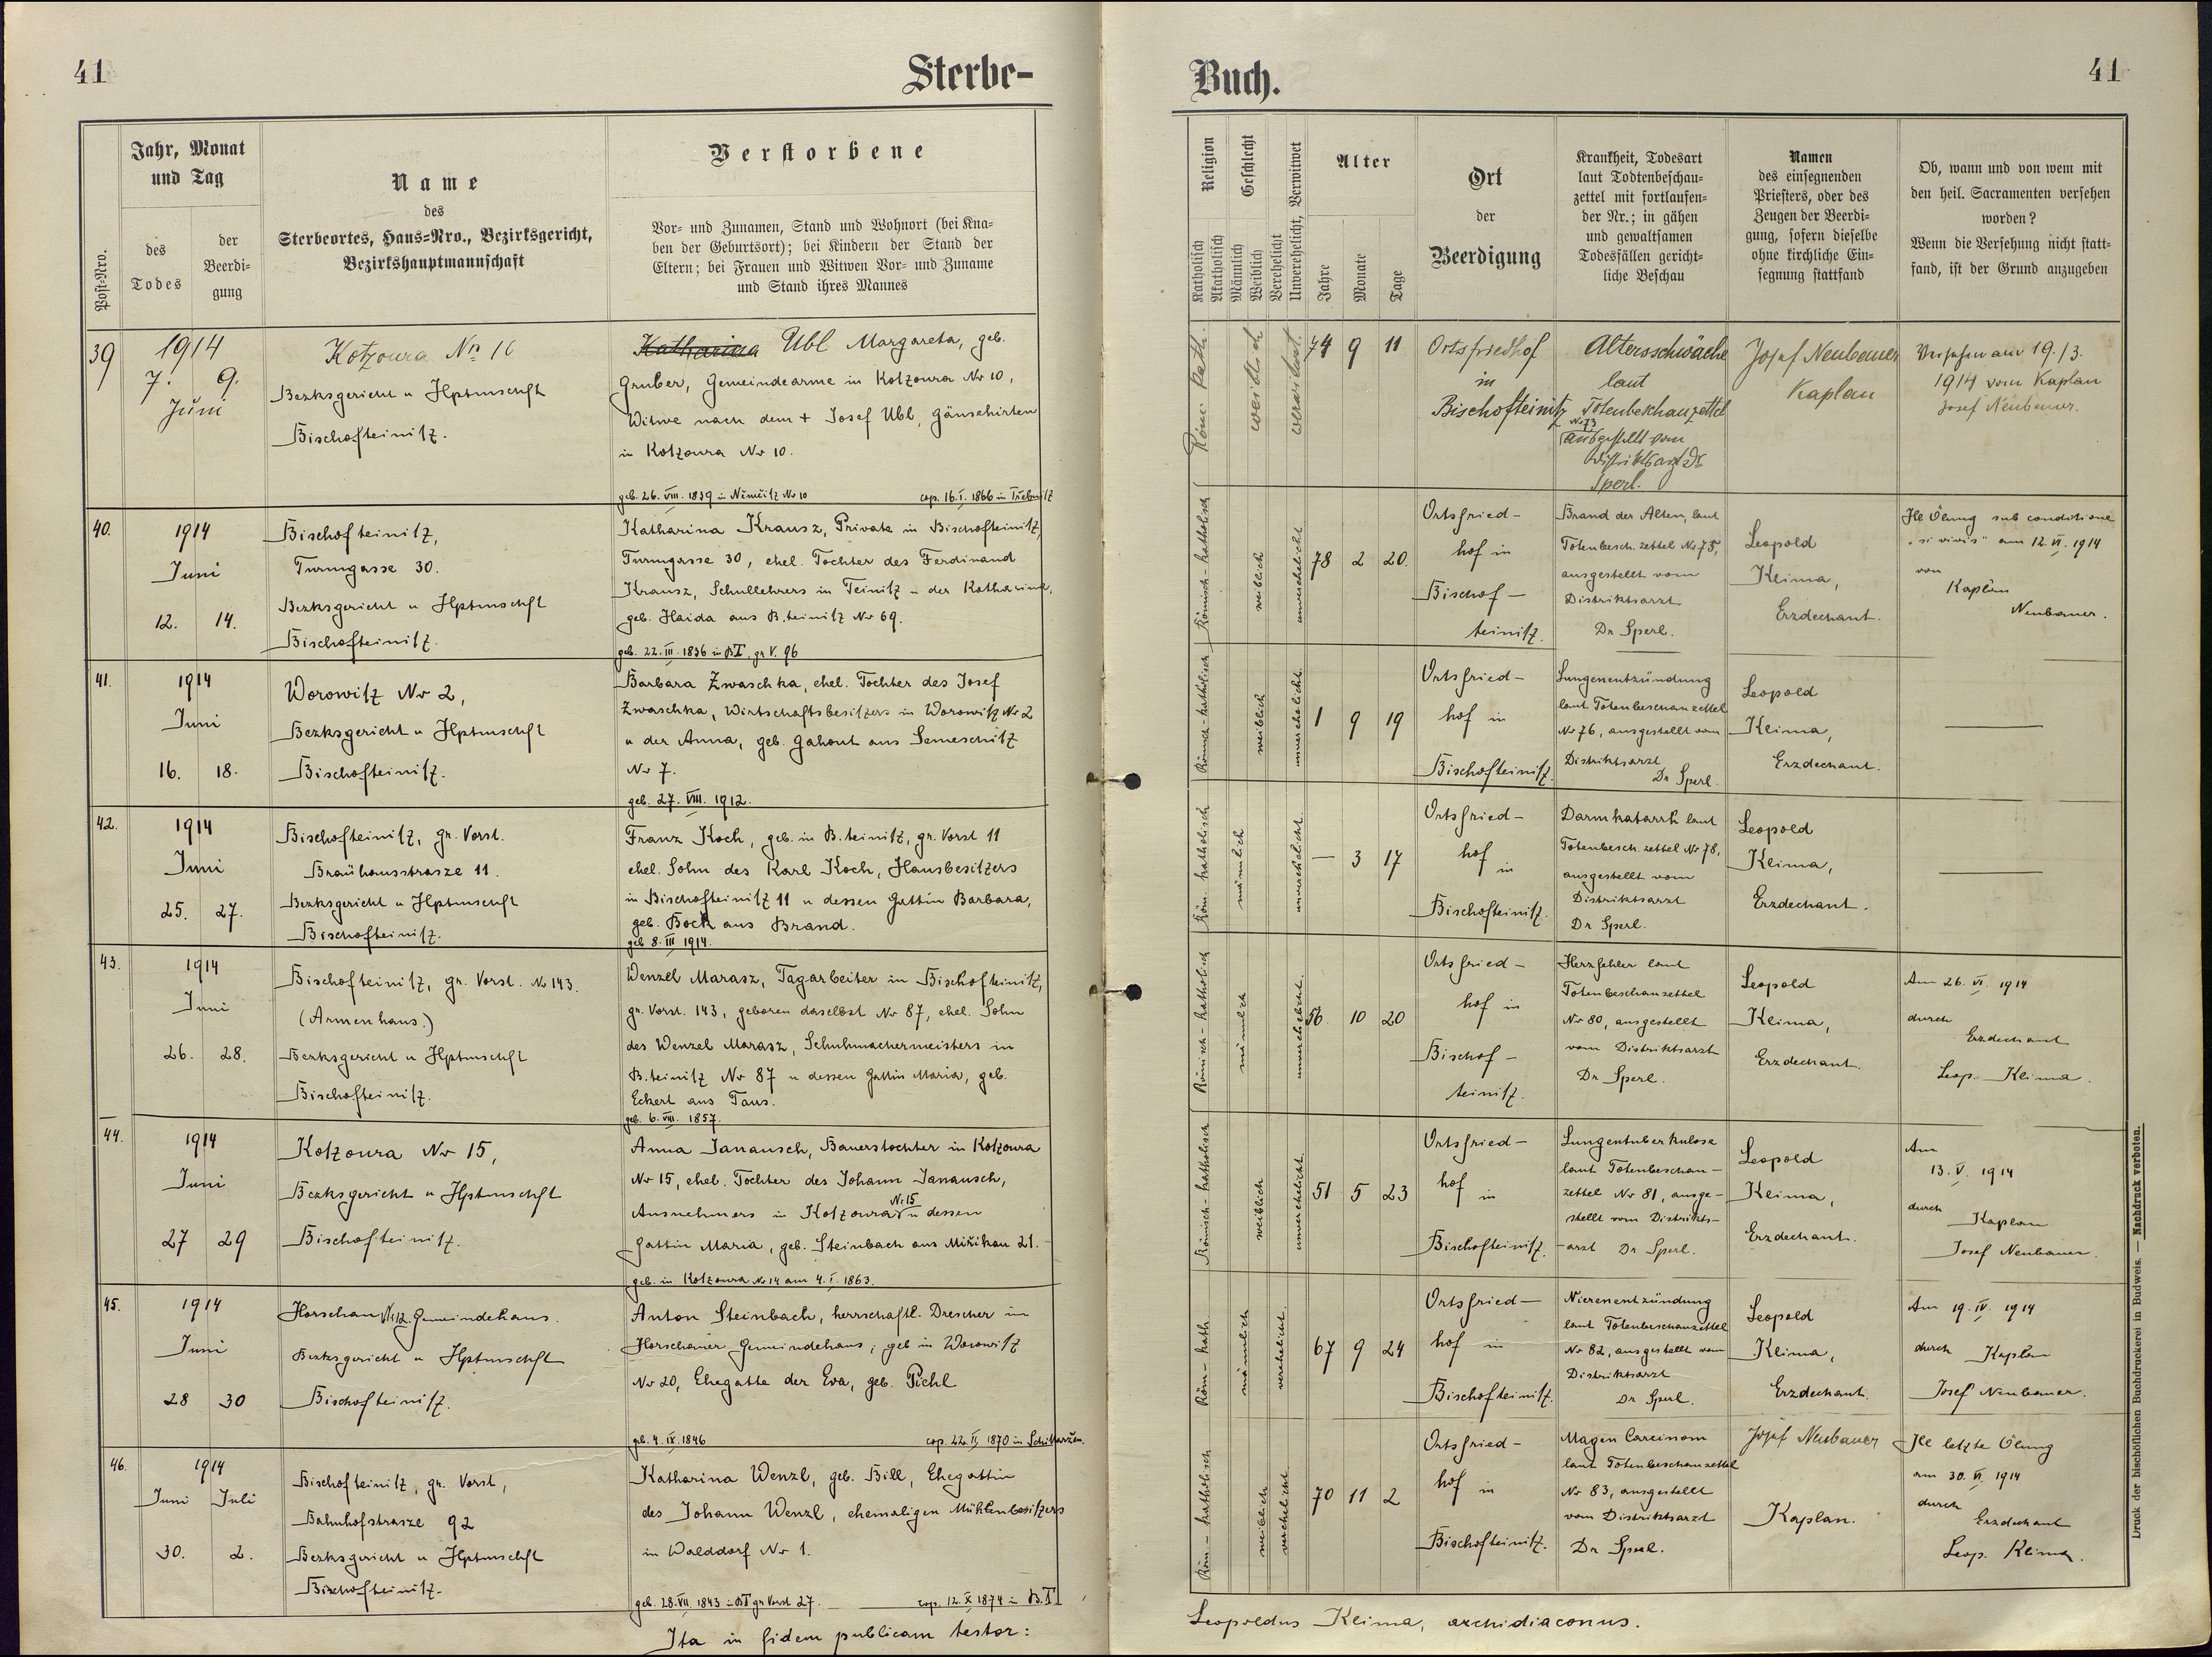 41
Sterbe-
Jahr, Monat
und Tag
Post-Nro.
des
Todes
der
Beerdi-
gung
Name
des
Sterbeortes, Haus-Nro., Bezirksgericht,
Bezirkshauptmannschaft
Verstorbene
Vor- und Zunamen, Stand und Wohnort (bei Kna-
ben der Geburtsort); bei Kindern der Stand der
Eltern; bei Frauen und Witwen Vor- und Zuname
und Stand ihres Mannes
39
1914
7. 9.
Juni
Kotzoura No 10
Bezksgericht u Hptmschft
Bischofteinitz.
Katharina Übl Margareta, geb.
Gruber, Gemeindearme in Kotzoura No 10,
Witwe nach dem + Josef Übl, Gänsehirten
in Kotzoura No 10.
geb. 26. VIII. 1839 in Němčitz No 10 cop. 16. I. 1866 in Třebnitz
40.
1914
Juni
12. 14.
Bischofteinitz,
Turmgasse 30.
Bezksgericht u Hptmschft
Bischofteinitz.
Katharina Krausz, Private in Bischofteinitz,
Turmgasse 30, ehel. Tochter des Ferdinand
Krausz, Schullehrers in Teinitz u der Katharina,
geb. Haida aus B.teinitz No 69.
geb. 22. III. 1836 in BT, gr V. 96
41.
1914
Juni
16. 18.
Worowitz No 2,
Bezksgericht u Hptmschft
Bischofteinitz.
Barbara Zwaschka, ehel. Tochter des Josef
Zwaschka, Wirtschaftsbesitzers in Worowitz No 2
u der Anna, geb. Gahout aus Semeschitz
No 7.
geb. 27. VIII. 1912.
42.
1914
Juni
25. 27.
Bischofteinitz, gr. Vorst.
Braühausstrasze 11.
Bezksgericht u Hptmschft
Bischofteinitz.
Franz Koch, geb. in B.teinitz, gr. Vorst 11
ehel. Sohn des Karl Koch, Hausbesitzers
in Bischofteinitz 11 u dessen Gattin Barbara,
geb. Bock aus Brand.
geb 8. III 1914.
43.
1914
Juni
26. 28.
Bischofteinitz, gr. Vorst. No 143.
(Armenhaus.)
Bezksgericht u Hptmschft
Bischofteinitz.
Wenzel Marasz, Tagarbeiter in Bischofteinitz,
gr. Vorst. 143, geboren daselbst No 87, ehel. Sohn
des Wenzel Marasz, Schuhmachermeisters in
B.teinitz No 87 u dessen Gattin Maria, geb.
Eckert aus Taus.
geb. 6. VIII. 1857.
44.
1914
Juni
27 29
Kotzoura No 15,
Bezksgericht u Hptmschft
Bischofteinitz.
Anna Janausch, Bauerstochter in Kotzoura
No 15, ehel. Tochter des Johann Janausch,
Ausnehmers in Kotzoura No 15 u dessen
Gattin Maria, geb. Steinbach aus Miřikau 21.
geb. in Kotzoura No 14 am 4. I. 1863.
45.
1914
Juni
28 30
Horschau No 12. Gemeindehaus.
Bezksgericht u Hptmschft
Bischofteinitz.
Anton Steinbach, herrschaftl. Drescher in
Horschauer Gemeindehaus, geb in Worowitz
No 20, Ehegatte der Eva, geb. Pichl
geb. 4. IX. 1846 cop. 22. II 1870 in Schittarzen.
46.
1914
Juni Juli
30. 2.
Bischofteinitz, gr. Vorst,
Bahnhofstrasze 92
Bezksgericht u Hptmschft
Bischofteinitz.
Katharina Wenzl, geb. Bill, Ehegattin
des Johann Wenzl, ehemaligen Mühlenbesitzers
in Walddorf No 1.
geb. 28. VII. 1843 in BT gr Vorst 27. cop. 12. X 1874 in B.T
Ita in fidem publicam testor:
Buch.
41
Religion
Katholisch
Akatholisch
Geschlecht
Männlich
Weiblich
Verehelicht
Unverehelicht, Verwitwet
Alter
Jahre
Monate
Tage
Ort
der
Beerdigung
Krankheit, Todesart
laut Todtenbeschau-
zettel mit fortlaufen-
der Nr.; in gähen
und gewaltsamen
Todesfällen gericht-
liche Beschau
Namen
des einsegnenden
Priesters, oder des
Zeugen der Beerdi-
gung, sofern dieselbe
ohne kirchliche Ein-
segnung stattfand
Ob, wann und von wem mit
den heil. Sacramenten versehen
worden?
Wenn die Versehung nicht statt-
fand, ist der Grund anzugeben
Röm. kath.
weiblich
verwitwet.
74 9 11
Ortsfriedhof
in
Bischofteinitz
Altersschwäche
laut
Totenbeschauzettel
No 73
ausgestellt vom
Distriktsarzt Dr
Sperl.
Josef Neubauer
Kaplan
Versehen am 19./3.
1914 vom Kaplan
Josef Neubauer.
Römisch-katholisch
weiblich
unverehelicht
78 2 20.
Ortsfried-
hof in
Bischof-
teinitz.
Brand der Alten, laut
Totenbesch.zettel No 75,
ausgestellt vom
Distriktsarzt
Dr Sperl.
Leopold
Klima,
Erzdechant.
Hle Ölung sub conditione
"si vivis" am 12. VI. 1914
von
Kaplan
Neubauer.
Römisch-katholisch
weiblich
unverehelicht.
1 9 19
Ortsfried-
hof in
Bischofteinitz.
Lungenentzündung
laut Totenbeschauzettel
No 76, ausgestellt vom
Distriktsarzt
Dr Sperl.
Leopold
Klima,
Erzdechant.
—
Röm. katholisch
männlich
unverehelicht.
— 3 17
Ortsfried-
hof
in
Bischofteinitz.
Darmkatarrh laut
Totenbesch.zettel No 78,
ausgestellt vom
Distriktsarzt
Dr Sperl.
Leopold
Klima,
Erzdechant.
—
Römisch-katholisch
männlich
unverehelicht.
56 10 20
Ortsfried-
hof in
Bischof-
teinitz.
Herzfehler laut
Totenbeschauzettel
No 80, ausgestellt
vom Distriktsarzt
Dr Sperl.
Leopold
Klima,
Erzdechant.
Am 26. VI. 1914
durch
Erzdechant
Leop. Klima.
Römisch-katholisch
weiblich
unverehelicht.
51 5 23
Ortsfried-
hof
in
Bischofteinitz.
Lungentuberkulose
laut Totenbeschau-
zettel No 81, ausge-
stellt vom Distrikts-
-arzt Dr Sperl.
Leopold
Klima,
Erzdechant.
Am
13. V. 1914
durch
Kaplan
Josef Neubauer.
Röm-kath.
männlich
verehelicht.
67 9 24
Ortsfried-
hof in
Bischofteinitz.
Nierenentzündung
laut Totenbeschauzettel
No 82, ausgestellt vom
Distriktsarzt
Dr Sperl.
Leopold
Klima,
Erzdechant.
Am 19. IV. 1914
durch Kaplan
Josef Neubauer.
Röm-katholisch
weiblich
verehelicht.
70 11 2
Ortsfried-
hof in
Bischofteinitz.
Magen Carcinom
laut Totenbeschauzettel
No 83, ausgestellt
vom Distriktsarzt
Dr Sperl.
Josef Neubauer
Kaplan.
Hle letzte Ölung
am 30. VI. 1914
durch
Erzdechant
Leop. Klima.
Leopoldus Klima, archidiaconus.
Druck der bischöflichen Buchdruckerei in Budweis. — Nachdruck verboten.